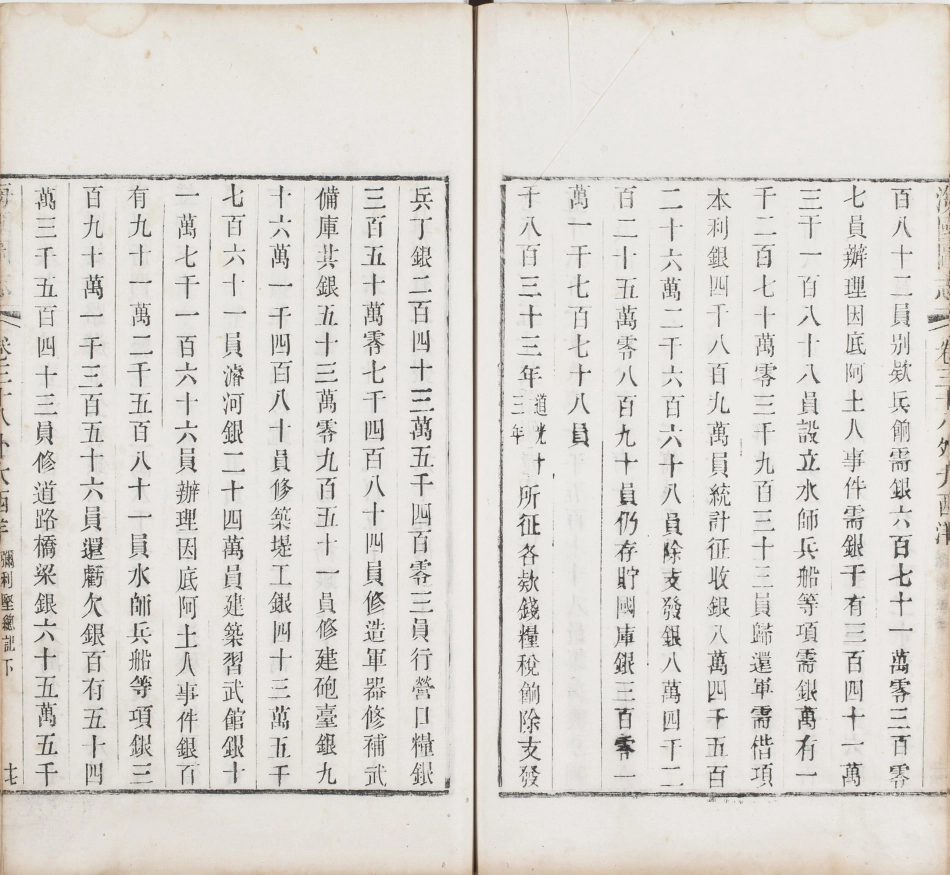 百八十二員别欵兵餉需銀六百七十一萬零三百零
七員辦理因底阿土人事件需銀千有三百四十一萬
三千一百八十八員設立水師兵船等項需銀萬有一
千二百七十萬零三千九百三十三員歸還軍需偕項
本利銀四千八百九萬員統計征收銀八萬四千五百
二十六萬二千六百六十八員除支發銀八萬四千二
百二十五萬零八百九十員仍存貯國庫銀三百零一
萬一千七百七十八員
千八百三十三年道光十三年所征各欵錢糧稅餉除支發
兵丁銀二百四十三萬五千四百零三員行營口糧銀
三百五十萬零七千四百八十四員修造軍器修補武
備庫其銀五十三萬零九百五十一員修建砲臺銀九
十六萬一千四百八十員修築堤工銀四十三萬五千
七百六十一員濬河銀二十四萬員建築習武館銀十
一萬七千一百六十六員辦理因底阿土人事件銀百
有九十一萬二千五百八十一員水師兵船等項銀三
百九十萬一千三百五十六員還虧欠銀百有五十四
萬三千五百四十三員修道路橋梁銀六十五萬五千
彌利堅總記下